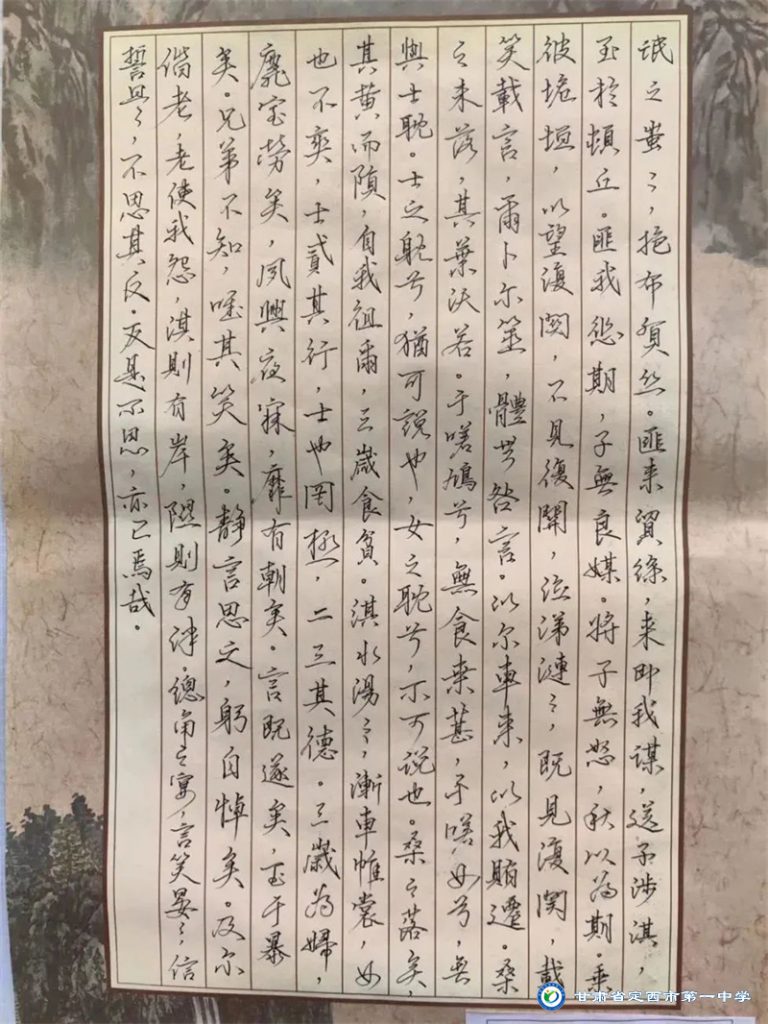 氓之蚩〻，抱布貿丝。匪来貿絲，来即我謀，送子涉淇，
至於頓丘。匪我愆期，子無良媒。将子無怒，秋以為期。乗
彼垝垣，以望復関，不見復関，泣涕漣〻，既見復関，載
笑載言，爾卜尔筮，體无咎言。以尔車来，以我賄遷。桑
之未落，其葉沃若。于嗟鳩兮，無食桒葚，于嗟女兮，無
與士耽。士之耽兮，猶可說也，女之耽兮，不可說也。桑之落矣，
其黄而隕，自我徂爾，三歲食貧。淇水湯〻，漸車帷裳，女
也不爽，士貳其行，士也罔極，二三其德。三歲為婦，
靡室勞矣，夙興夜寐，靡有朝矣。言既遂矣，至于暴
矣。兄弟不知，咥其笑矣。靜言思之，躬自悼矣。及尔
偕老，老使我怨，淇則有岸，隰則有泮。總角之宴，言笑晏〻，信
誓旦〻，不思其反。反是不思，亦已焉哉。
甘肃省定西市第一中学